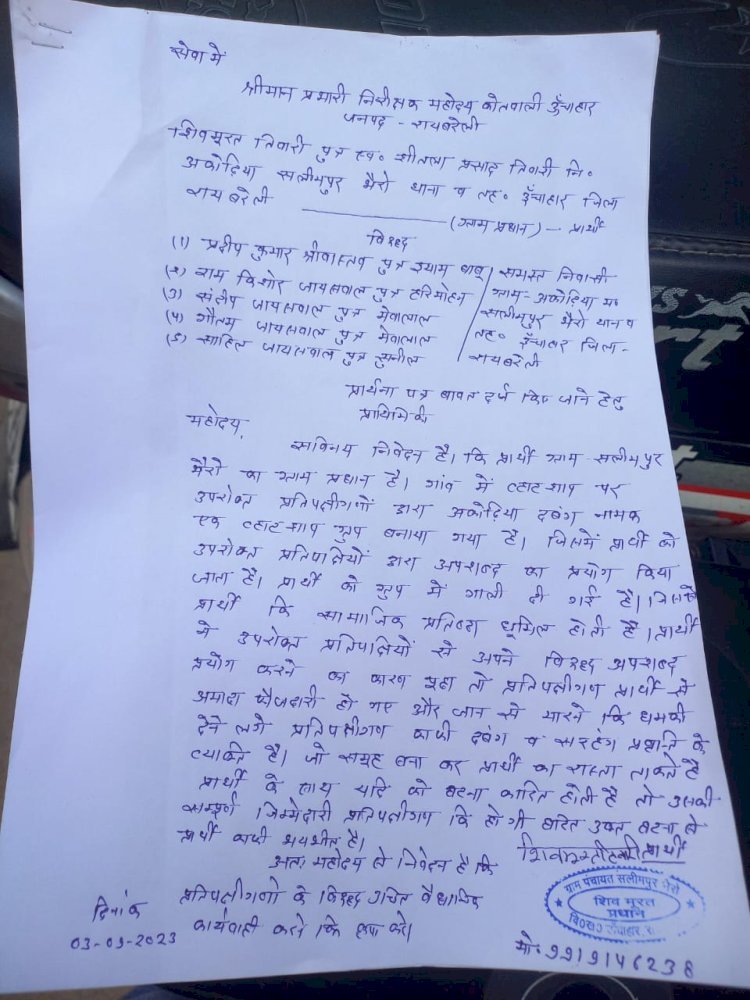 सेवा में
श्रीमान प्रभारी निरीक्षक महोदय कोतवाली ऊँचाहार
जनपद - रायबरेली
शिवमूरत तिवारी पुत्र स्व० शीतला प्रसाद तिवारी नि०
अकोढ़िया सलीमपुर भैरो थाना व तह० ऊँचाहार जिला
रायबरेली (ग्राम प्रधान) - प्रार्थी
विरुद्ध
(1) प्रदीप कुमार श्रीवास्तव पुत्र श्याम बाबू
(2) राम किशोर जायसवाल पुत्र हरिमोहन
(3) संदीप जायसवाल पुत्र मेवालाल
(4) गौतम जायसवाल पुत्र मेवालाल
(5) साहिल जायसवाल पुत्र सुनील
समस्त निवासी
ग्राम- अकोढ़िया म०
सलीमपुर भैरो थाना व
तह० ऊँचाहार जिला-
रायबरेली
प्रार्थना पत्र बावत दर्ज किए जाने हेतु
प्राथिमिकी
महोदय,
सविनय निवेदन है। कि प्रार्थी ग्राम-सलीमपुर
भैरो का ग्राम प्रधान है। गांव में व्हाट्शाप पर
उपरोक्त प्रतिपक्षीगणों द्वारा अकोढ़िया दबंग नामक
एक व्हाट्शाप ग्रुप बनाया गया है। जिसमें प्रार्थी को
उपरोक्त प्रतिपक्षियों द्वारा अपशब्द का प्रयोग किया
जाता है। प्रार्थी को ग्रुप में गाली दी गई है। जिससे
प्रार्थी कि सामाजिक प्रतिष्ठा धूमिल होती है। प्रार्थी
ने उपरोक्त प्रतिपक्षियों से अपने विरुद्ध अपशब्द
प्रयोग करने का कारण पूछा तो प्रतिपक्षीगण प्रार्थी से
अमादा फौजदारी हो गए और जान से मारने कि धमकी
देने लगे प्रतिपक्षीगण काफी दबंग व सरहंग प्रवृत्ति के
व्यक्ति है। जो समूह बना कर प्रार्थी का रास्ता ताकते है
प्रार्थी के साथ यदि को घटना कारित होती है तो उसकी
सम्पूर्ण जिम्मेदारी प्रतिपक्षीगण कि होगी घटित उक्त घटना से
प्रार्थी काफी भयभीत है।
अतः महोदय से निवेदन है कि
प्रतिपक्षीगणो के विरुद्ध उचित वैधानिक
कार्यवाही करने कि कृपा करे।
प्रार्थी
ग्राम पंचायत सलीमपुर भैरो
शिव मूरत
प्रधान
दिनांक
03-09-2023
मो०- 9919146238